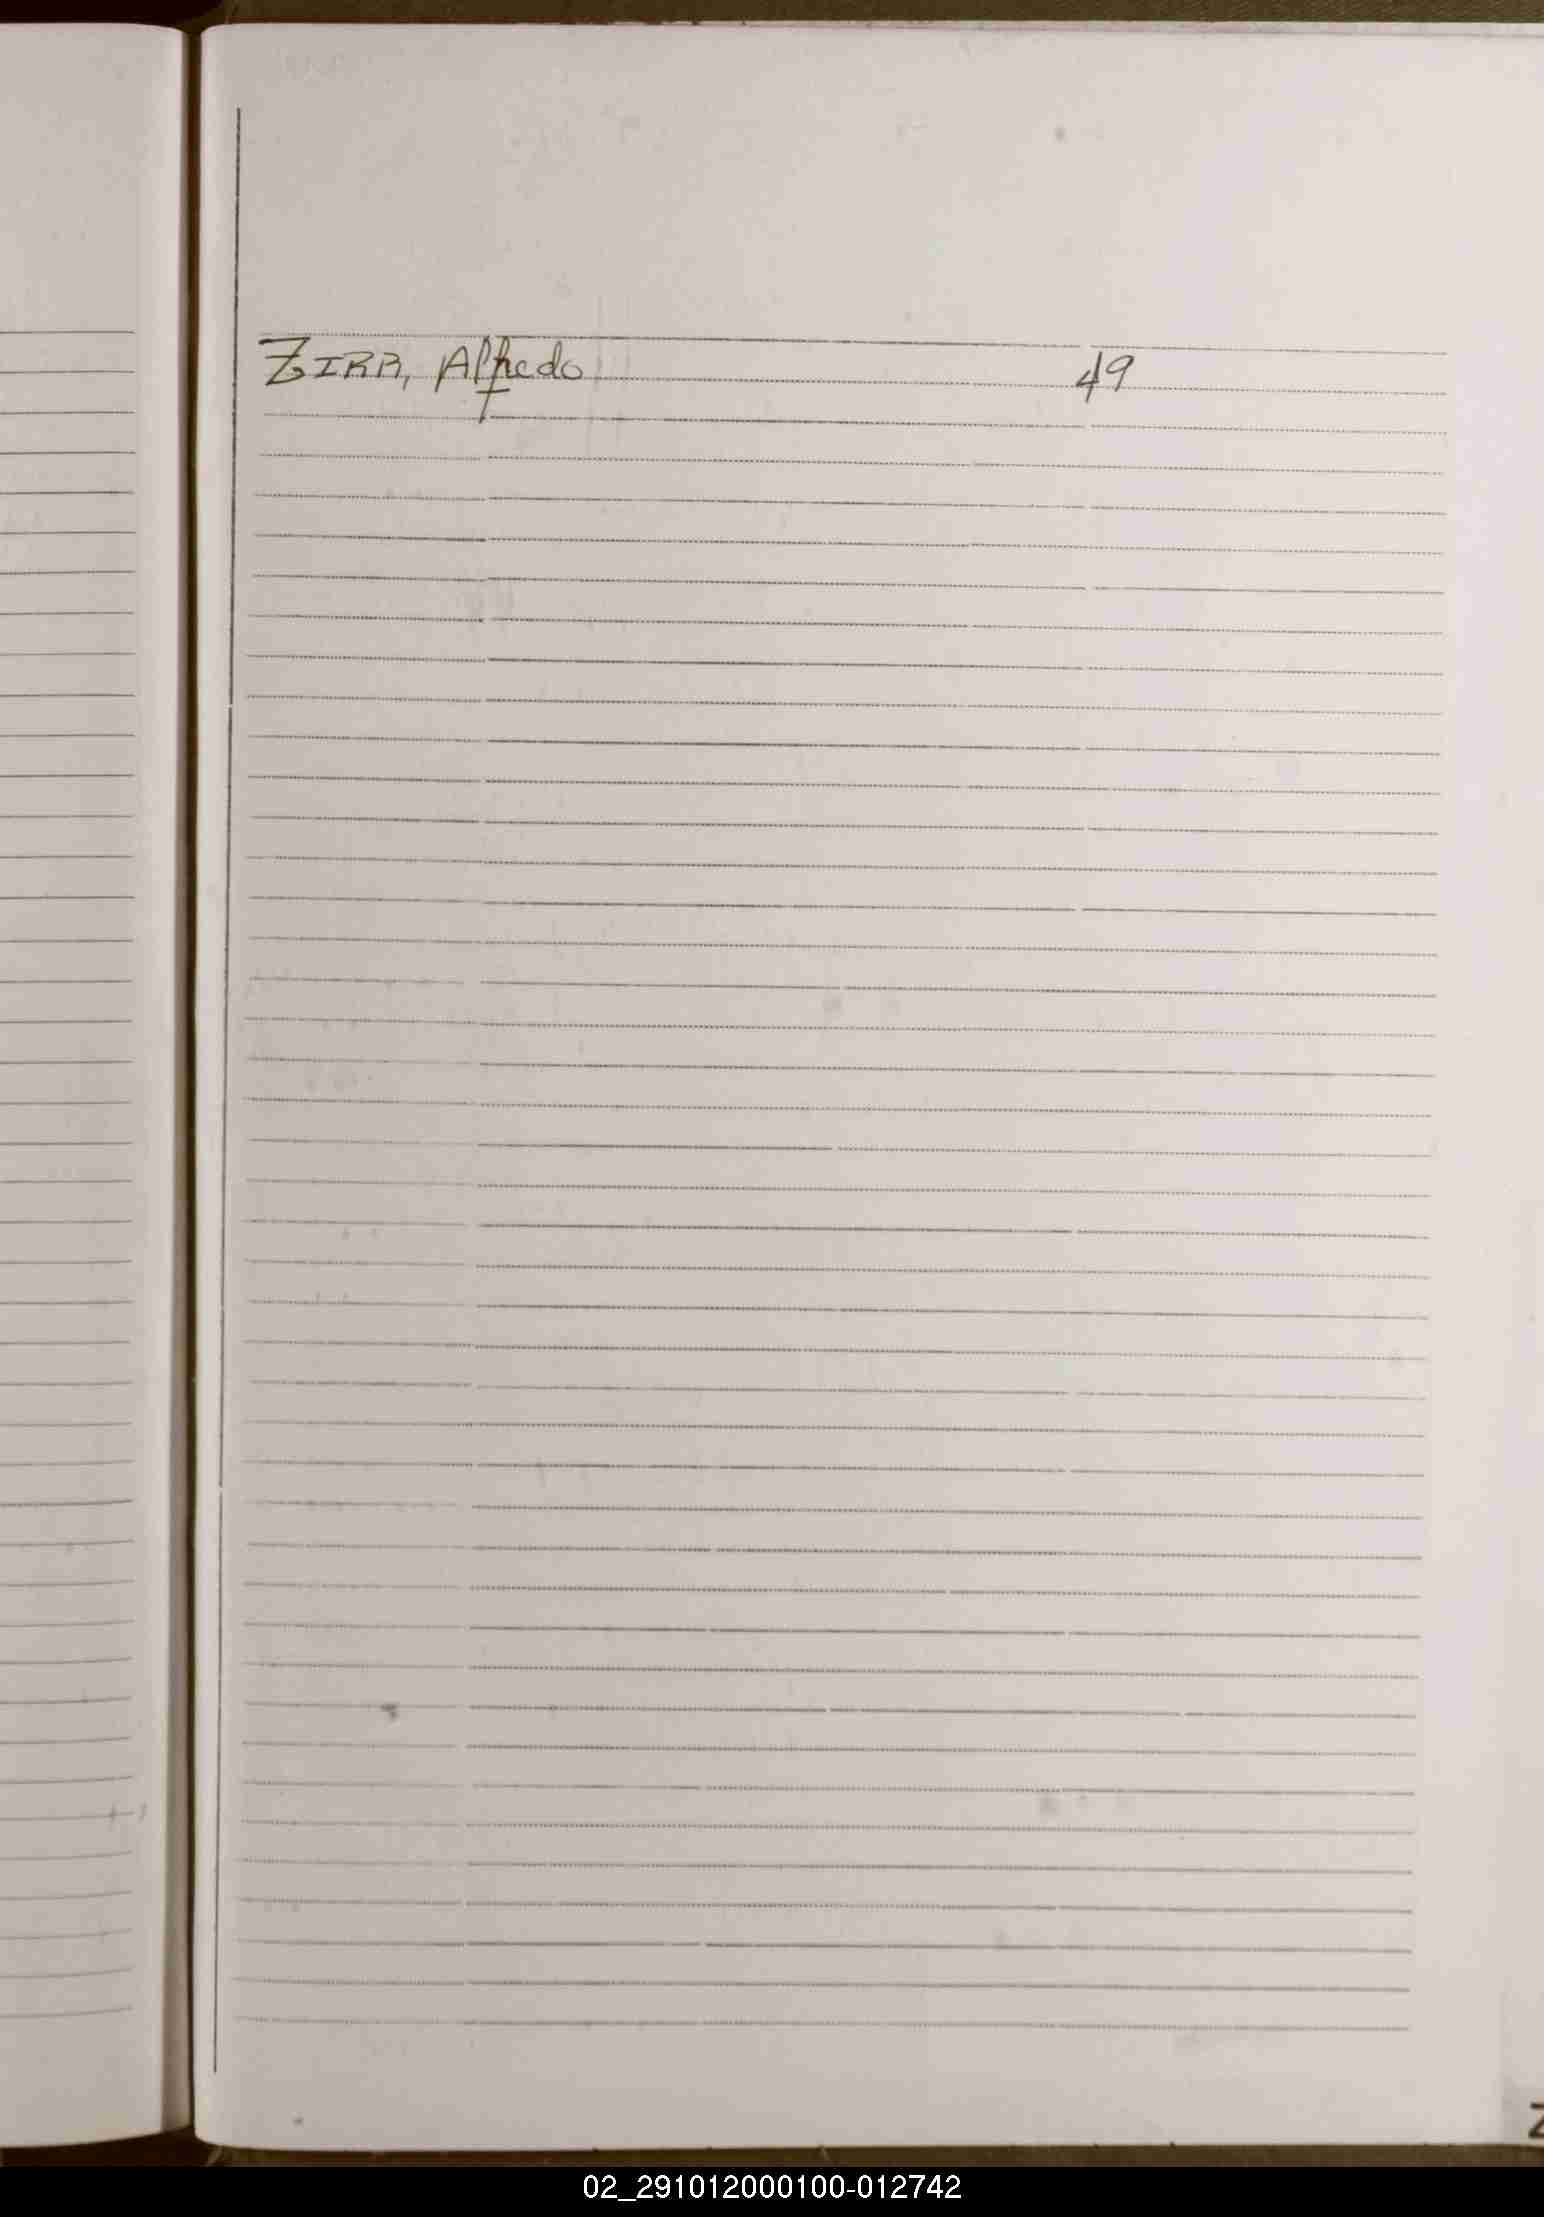 ZIRR, Alfredo 49
Z
02_291012000100-012742